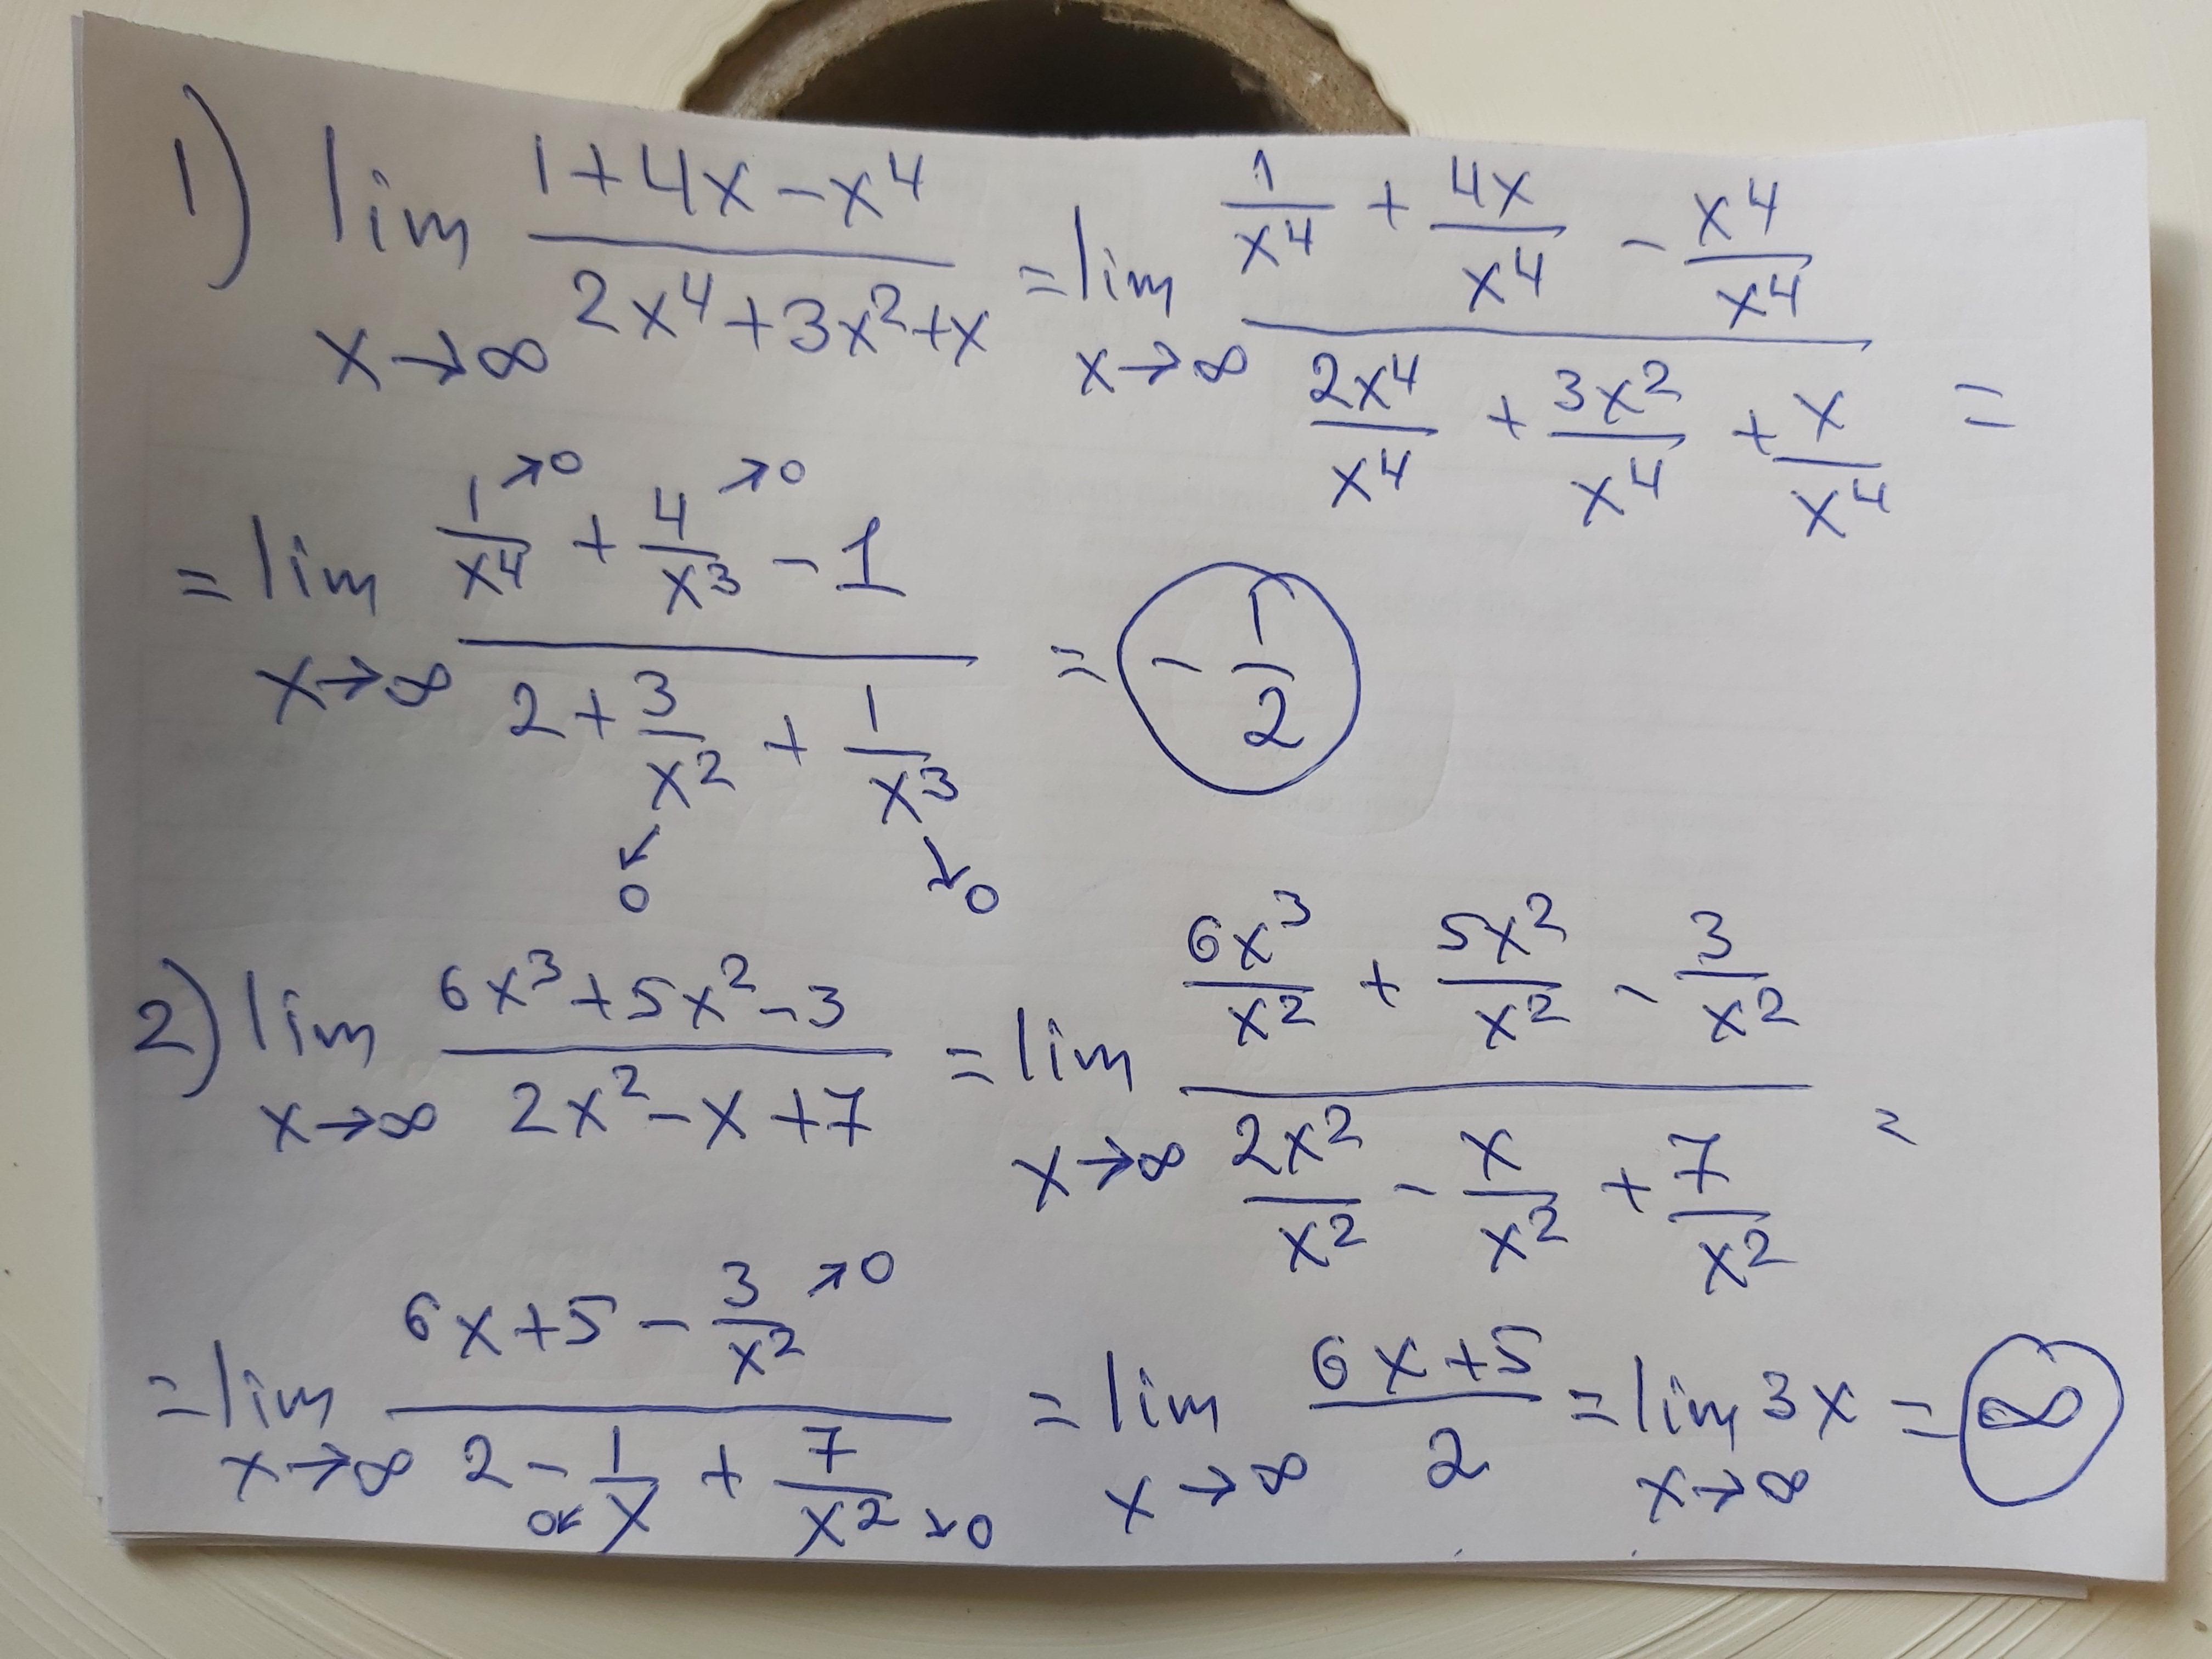 1) lim x→∞ (1+4x-x⁴)/(2x⁴+3x²+x) = lim x→∞ (1/x⁴ + 4x/x⁴ - x⁴/x⁴)/(2x⁴/x⁴ + 3x²/x⁴ + x/x⁴) =
= lim x→∞ (1/x⁴ →0 + 4/x³ →0 - 1)/(2 + 3/x² →0 + 1/x³ →0) = -1/2
2) lim x→∞ (6x³+5x²-3)/(2x²-x+7) = lim x→∞ (6x³/x² + 5x²/x² - 3/x²)/(2x²/x² - x/x² + 7/x²) =
= lim x→∞ (6x+5-3/x² →0)/(2 - 1/x →0 + 7/x² →0) = lim x→∞ (6x+5)/2 = lim x→∞ 3x = ∞